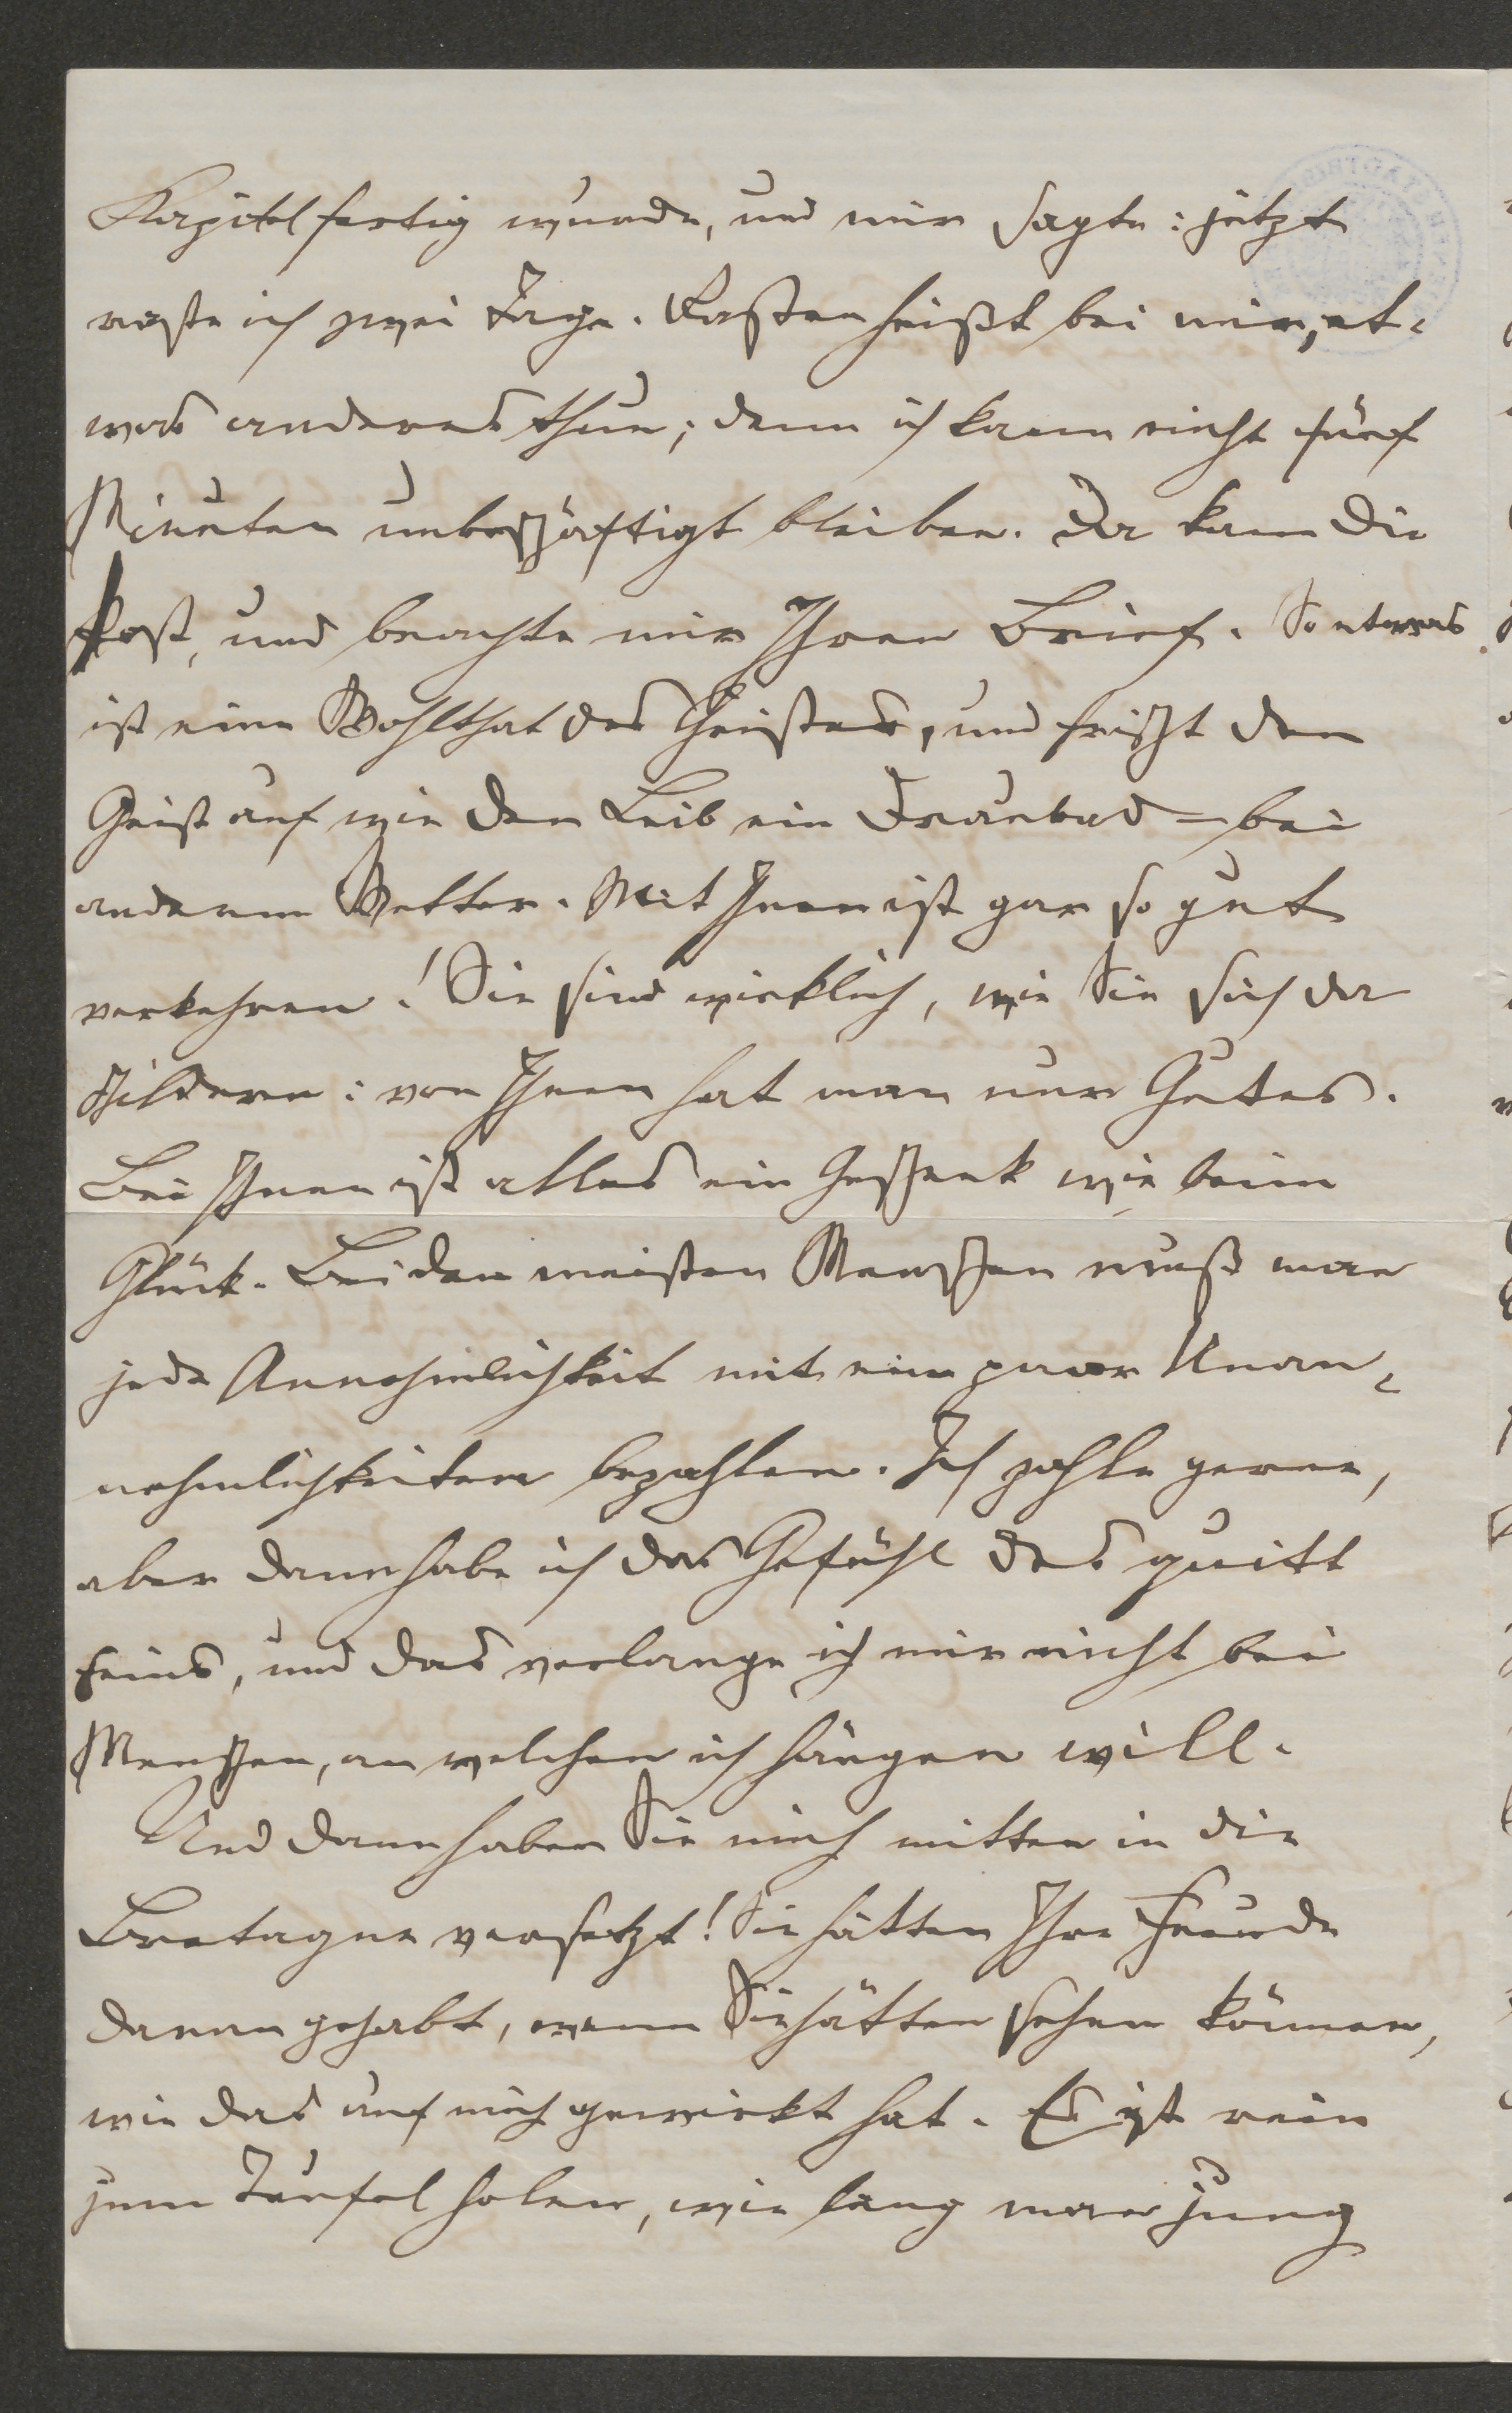 Kapitel fertig wurde, und mir sagte: jetzt
raste ich zwei Tage. Rasten heißt bei mir, et-
was anderes thun; denn ich kann nicht fünf
Minuten unbeschäftigt bleiben. Da kam die
Post, und brachte mir Ihren Brief. So etwas
ist eine Wohlthat des Geistes, und frischt den
Geist auf wie den Leib ein Draubad – bei
anderem Wetter. Mit Ihnen ist gar so gut
verkehren! Sie sind wirklich, wie Sie sich da
schildern: von Ihnen hat man nur Gutes.
Bei Ihnen ist alles ein Geschenk wie beim
Glück. Bei den meisten Menschen muß man
jede Annehmlichkeit mit ein paar Unan-
nehmlichkeiten bezahlen. Ich zahle gerne,
aber dann habe ich das Gefühl des quitt
seins, und das verlange ich mir nicht bei
Menschen, an welchen ich hängen will.
Und dann haben Sie mich mitten in die
Bretagne versetzt! Sie hätten Ihre Freude
daran gehabt, wenn Sie hätten sehen können,
wie das auf mich gewirkt hat. Es ist rein
zum Teufel holen, wie lang man jung